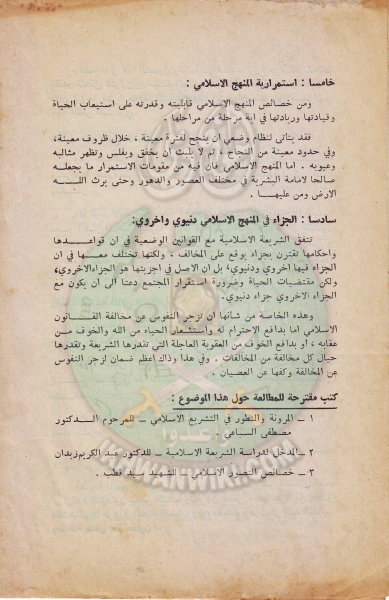 خامسا : استمرارية المنهج الاسلامي :
ومن خصائص المنهج الاسلامي قابليته وقدرته على استيعاب الحياة
وقيادتها وريادتها في اية مرحلة من مراحلها .
فقد يتأتى لنظام وضعي ان ينجح لفترة معينة ، خلال ظروف معينة،
وفي حدود معينة من النجاح ، ثم لا يلبث ان يخفق ويفلس وتظهر مثالبه
وعيوبه . اما المنهج الاسلامي فان فيه من مقومات الاستمرار ما يجعله
صالحا لامامة البشرية في مختلف العصور والدهور وحتى يرث اللـــه
الارض ومن عليهـا .
سادسا : الجزاء في المنهج الاسلامي دنيوي واخروي:
تتفق الشريعة الاسلامية مع القوانين الوضعية في ان قواعـــدها
واحكامها تقترن بجزاء يوقع على المخالف ، ولكنها تختلف معهـا في ان
الجزاء فيها اخروي ودنيوي، بل ان الاصل في اجزيتها هو الجزاءالاخروي،
ولكن مقتضيات الحياة وضرورة استقرار المجتمع دعتا الى ان يكون مع
الجزاء الاخروي جزاء دنيوي.
وهذه الخاصة من شأنها ان تزجر النفوس عن مخالفة القـــانون
الاسلامي اما بدافع الاحترام له واستشعار الحياء من الله والخوف مـن
عقابه ، او بدافع الخوف من العقوبة العاجلة التي تقدرها الشريعة وتقدرها
حيال كل مخالفة من المخالفات . وفي هذا وذاك اعظم ضمان لزجر النفوس
عن المخالفة وكفها عن العصيان .
كتب مقترحة للمطالعة حول هذا الموضوع :
١ – المرونة والتطور في التشريع الاسلامي – للمرحوم الـــدكتور
مصطفى السباعي .
٢ – المدخل لدراسة الشريعة الاسلامية – للدكتور عبد الكريم زيدان
٣ – خصائص التصور الاسلامي – للشهيد سيد قطب .